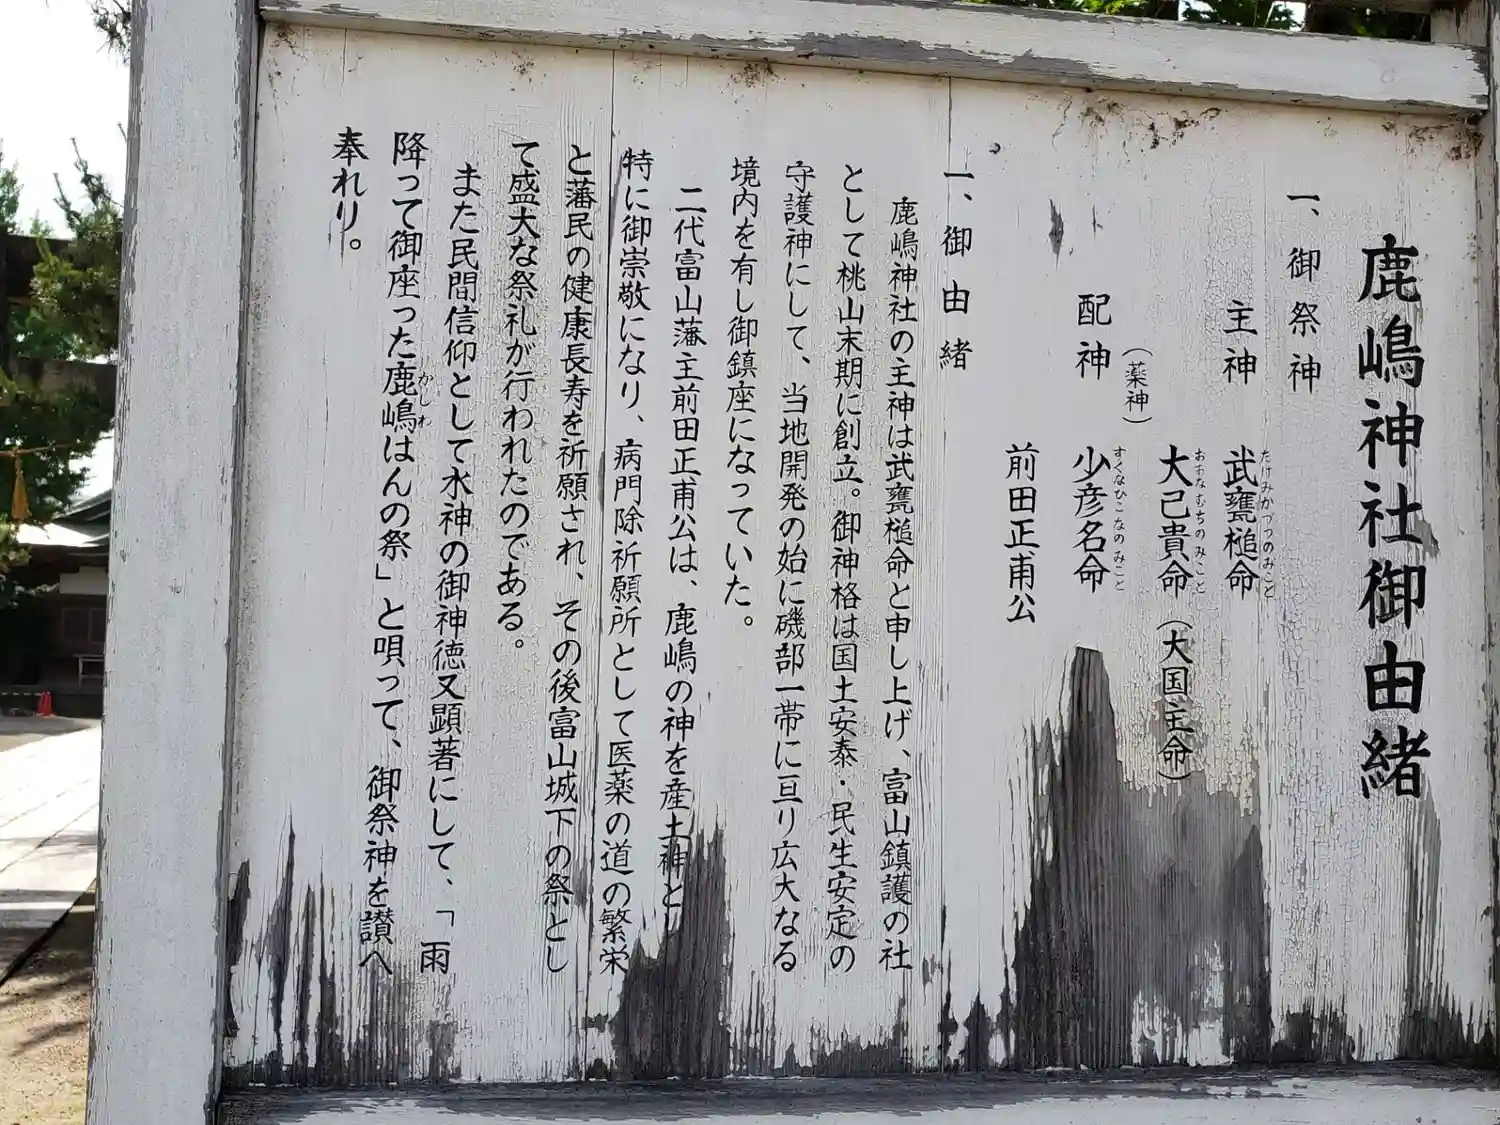 鹿嶋神社御由緒
一、御祭神
主神 武甕槌命
たけみかづちのみこと
大己貴命（大国主命）
おおなむちのみこと
（薬神）
配神 少彦名命
すくなひこなのみこと
前田正甫公
一、御由緒
鹿嶋神社の主神は武甕槌命と申し上げ、富山鎮護の社
として桃山末期に創立。御神格は国土安泰・民生安定の
守護神にして、当地開発の始に磯部一帯に亘り広大なる
境内を有し御鎮座になっていた。
二代富山藩主前田正甫公は、鹿嶋の神を産土神と
特に御崇敬になり、病門除祈願所として医薬の道の繁栄
と藩民の健康長寿を祈願され、その後富山城下の祭とし
て盛大な祭礼が行われたのである。
また民間信仰として水神の御神徳又顕著にして、「雨
降って御座った鹿嶋はんの祭」と唄って、御祭神を讃へ
かしわ
奉れり。